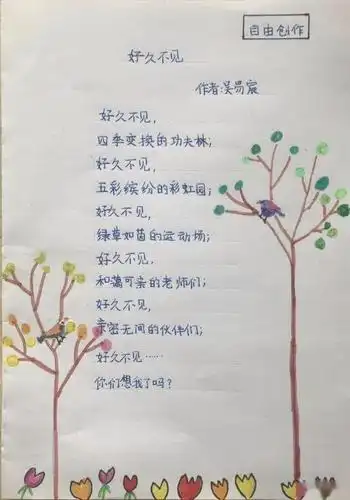 自由创作
好久不见
作者:吴易宸
好久不见,
四季变换的功夫林;
好久不见,
五彩缤纷的彩虹园;
好久不见,
绿草如茵的运动场;
好久不见,
和蔼可亲的老师们;
好久不见,
亲密无间的伙伴们;
好久不见……
你们想我了吗?